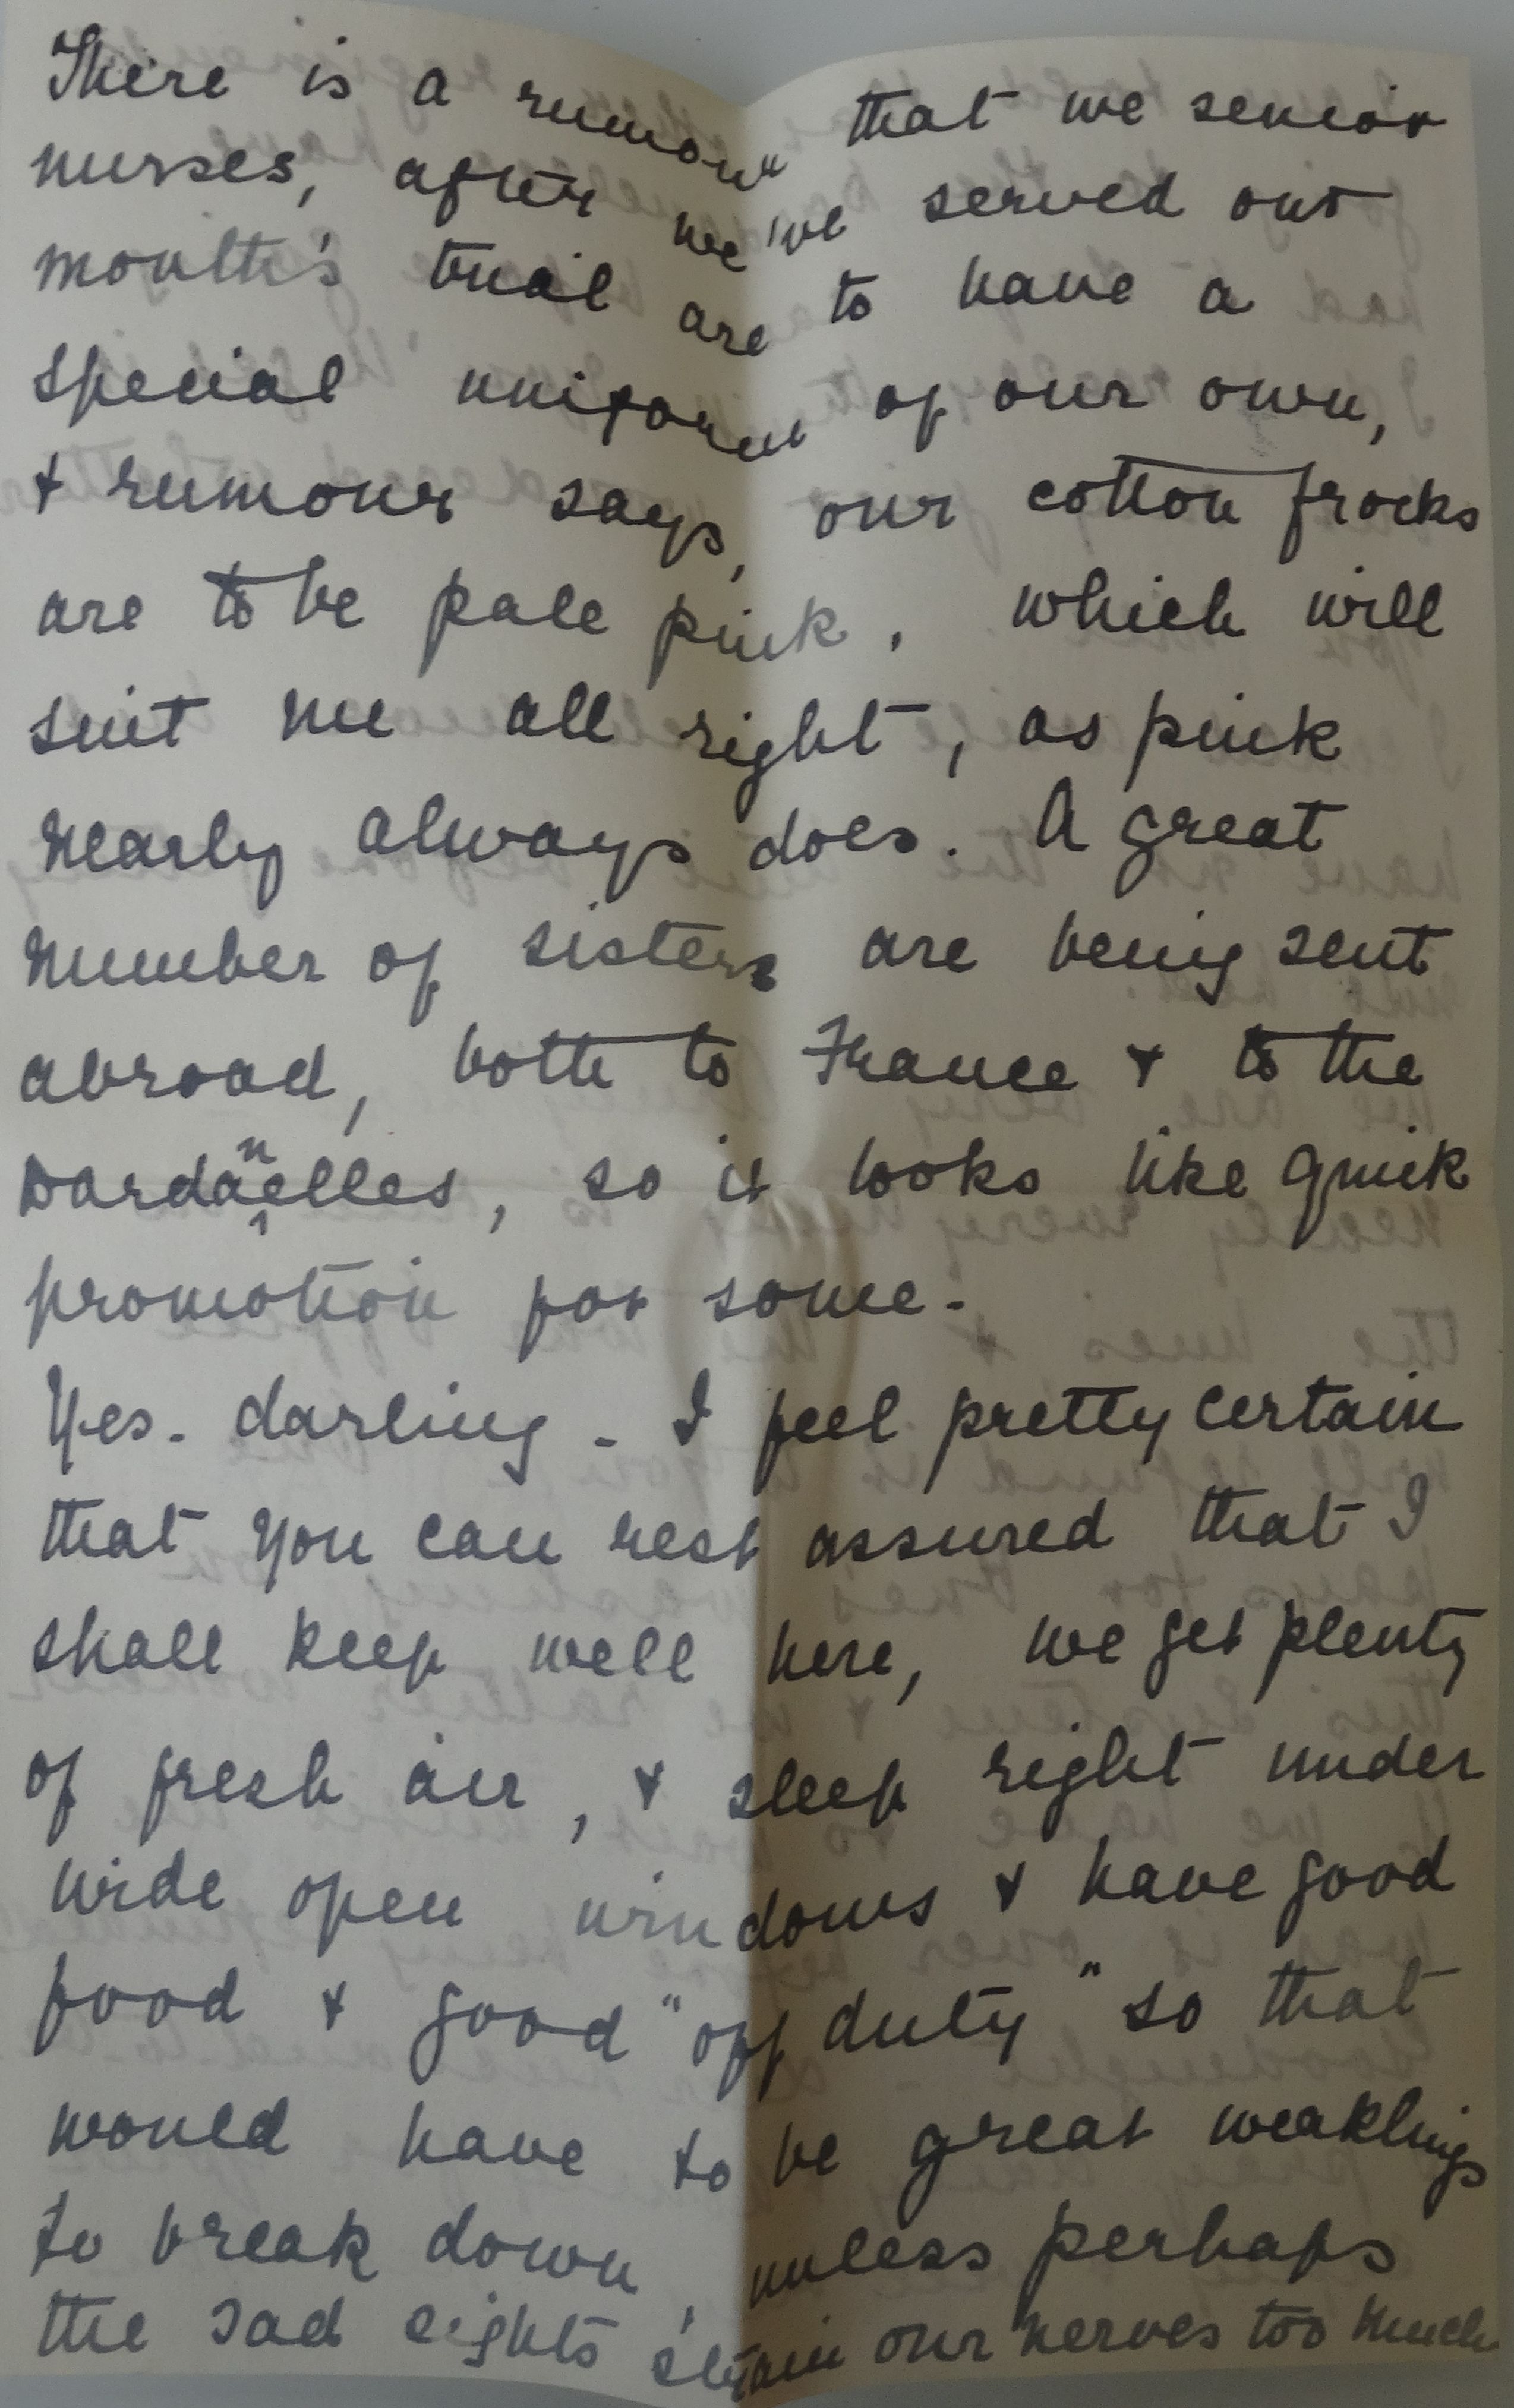 There is a rumour" that we senior
nurses, after we've served our
month's trial are to have a
special uniform of our own,
& rumour says, our cotton frocks
are to be pale pink, which will
suit me all right, as pink
nearly always does. A great
number of sisters are being sent
abroad, both to France & to the
Dardanelles, so it looks like quick
promotion for some.
Yes. darling - I feel pretty certain
that you can rest assured that I
shall keep well here, we get plenty
of fresh air, & sleep right under
wide open windows & have good
food & good "off duty" so that
would have to be great weaklings
to break down, unless perhaps
the sad sights strain our nerves too much